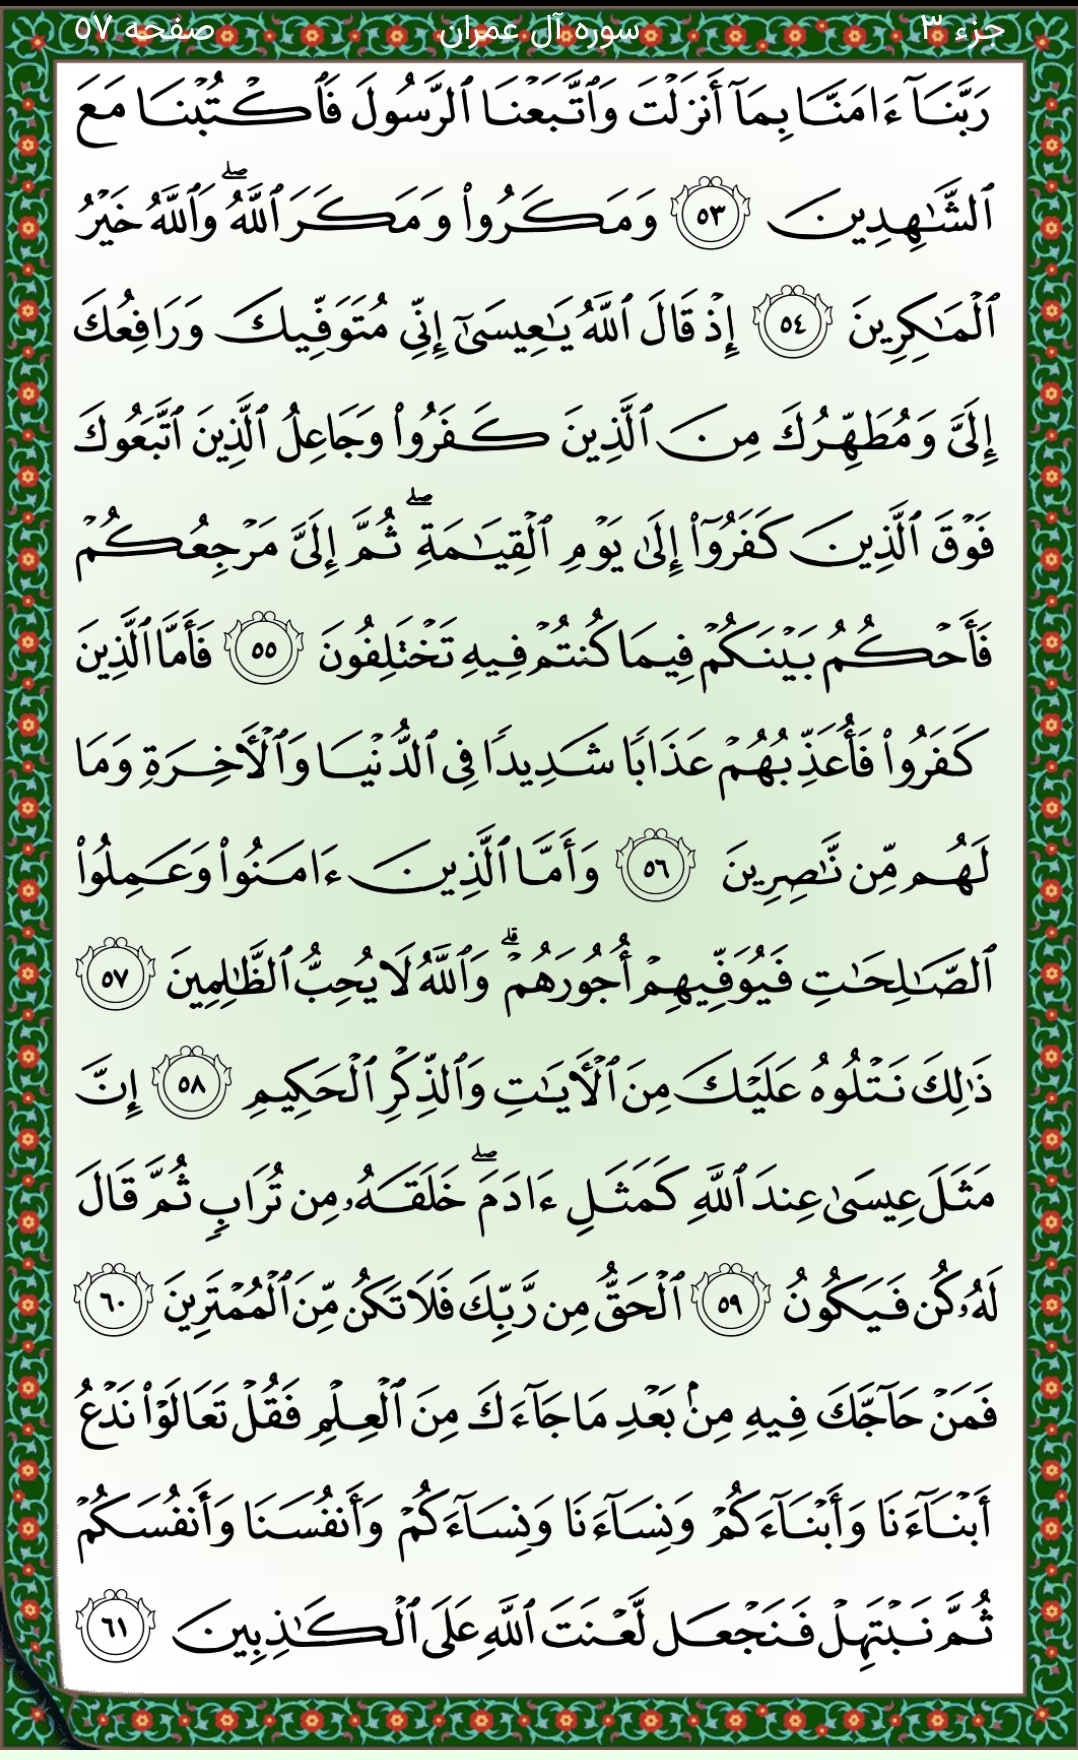 جزء ٣ سوره آل عمران صفحه ٥٧
رَبَّنَآ ءَامَنَّا بِمَآ أَنزَلْتَ وَٱتَّبَعْنَا ٱلرَّسُولَ فَٱكْتُبْنَا مَعَ
ٱلشَّٰهِدِينَ ٥٣ وَمَكَرُوا۟ وَمَكَرَ ٱللَّهُ ۖ وَٱللَّهُ خَيْرُ
ٱلْمَٰكِرِينَ ٥٤ إِذْ قَالَ ٱللَّهُ يَٰعِيسَىٰٓ إِنِّى مُتَوَفِّيكَ وَرَافِعُكَ
إِلَىَّ وَمُطَهِّرُكَ مِنَ ٱلَّذِينَ كَفَرُوا۟ وَجَاعِلُ ٱلَّذِينَ ٱتَّبَعُوكَ
فَوْقَ ٱلَّذِينَ كَفَرُوٓا۟ إِلَىٰ يَوْمِ ٱلْقِيَٰمَةِ ۖ ثُمَّ إِلَىَّ مَرْجِعُكُمْ
فَأَحْكُمُ بَيْنَكُمْ فِيمَا كُنتُمْ فِيهِ تَخْتَلِفُونَ ٥٥ فَأَمَّا ٱلَّذِينَ
كَفَرُوا۟ فَأُعَذِّبُهُمْ عَذَابًا شَدِيدًا فِى ٱلدُّنْيَا وَٱلْأَخِرَةِ وَمَا
لَهُم مِّن نَّٰصِرِينَ ٥٦ وَأَمَّا ٱلَّذِينَ ءَامَنُوا۟ وَعَمِلُوا۟
ٱلصَّٰلِحَٰتِ فَيُوَفِّيهِمْ أُجُورَهُمْ ۗ وَٱللَّهُ لَا يُحِبُّ ٱلظَّٰلِمِينَ ٥٧
ذَٰلِكَ نَتْلُوهُ عَلَيْكَ مِنَ ٱلْأَيَٰتِ وَٱلذِّكْرِ ٱلْحَكِيمِ ٥٨ إِنَّ
مَثَلَ عِيسَىٰ عِندَ ٱللَّهِ كَمَثَلِ ءَادَمَ ۖ خَلَقَهُۥ مِن تُرَابٍ ثُمَّ قَالَ
لَهُۥ كُن فَيَكُونُ ٥٩ ٱلْحَقُّ مِن رَّبِّكَ فَلَا تَكُن مِّنَ ٱلْمُمْتَرِينَ ٦٠
فَمَنْ حَآجَّكَ فِيهِ مِنۢ بَعْدِ مَا جَآءَكَ مِنَ ٱلْعِلْمِ فَقُلْ تَعَالَوْا۟ نَدْعُ
أَبْنَآءَنَا وَأَبْنَآءَكُمْ وَنِسَآءَنَا وَنِسَآءَكُمْ وَأَنفُسَنَا وَأَنفُسَكُمْ
ثُمَّ نَبْتَهِلْ فَنَجْعَل لَّعْنَتَ ٱللَّهِ عَلَى ٱلْكَٰذِبِينَ ٦١